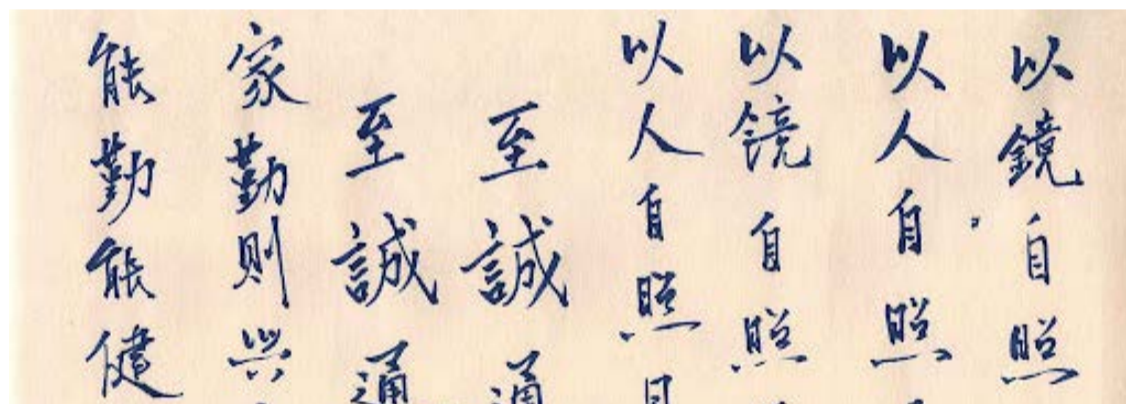 以鏡自照
以人自照
以镜自照
以人自照見
至誠通
至誠通
家勤则兴
能勤能健